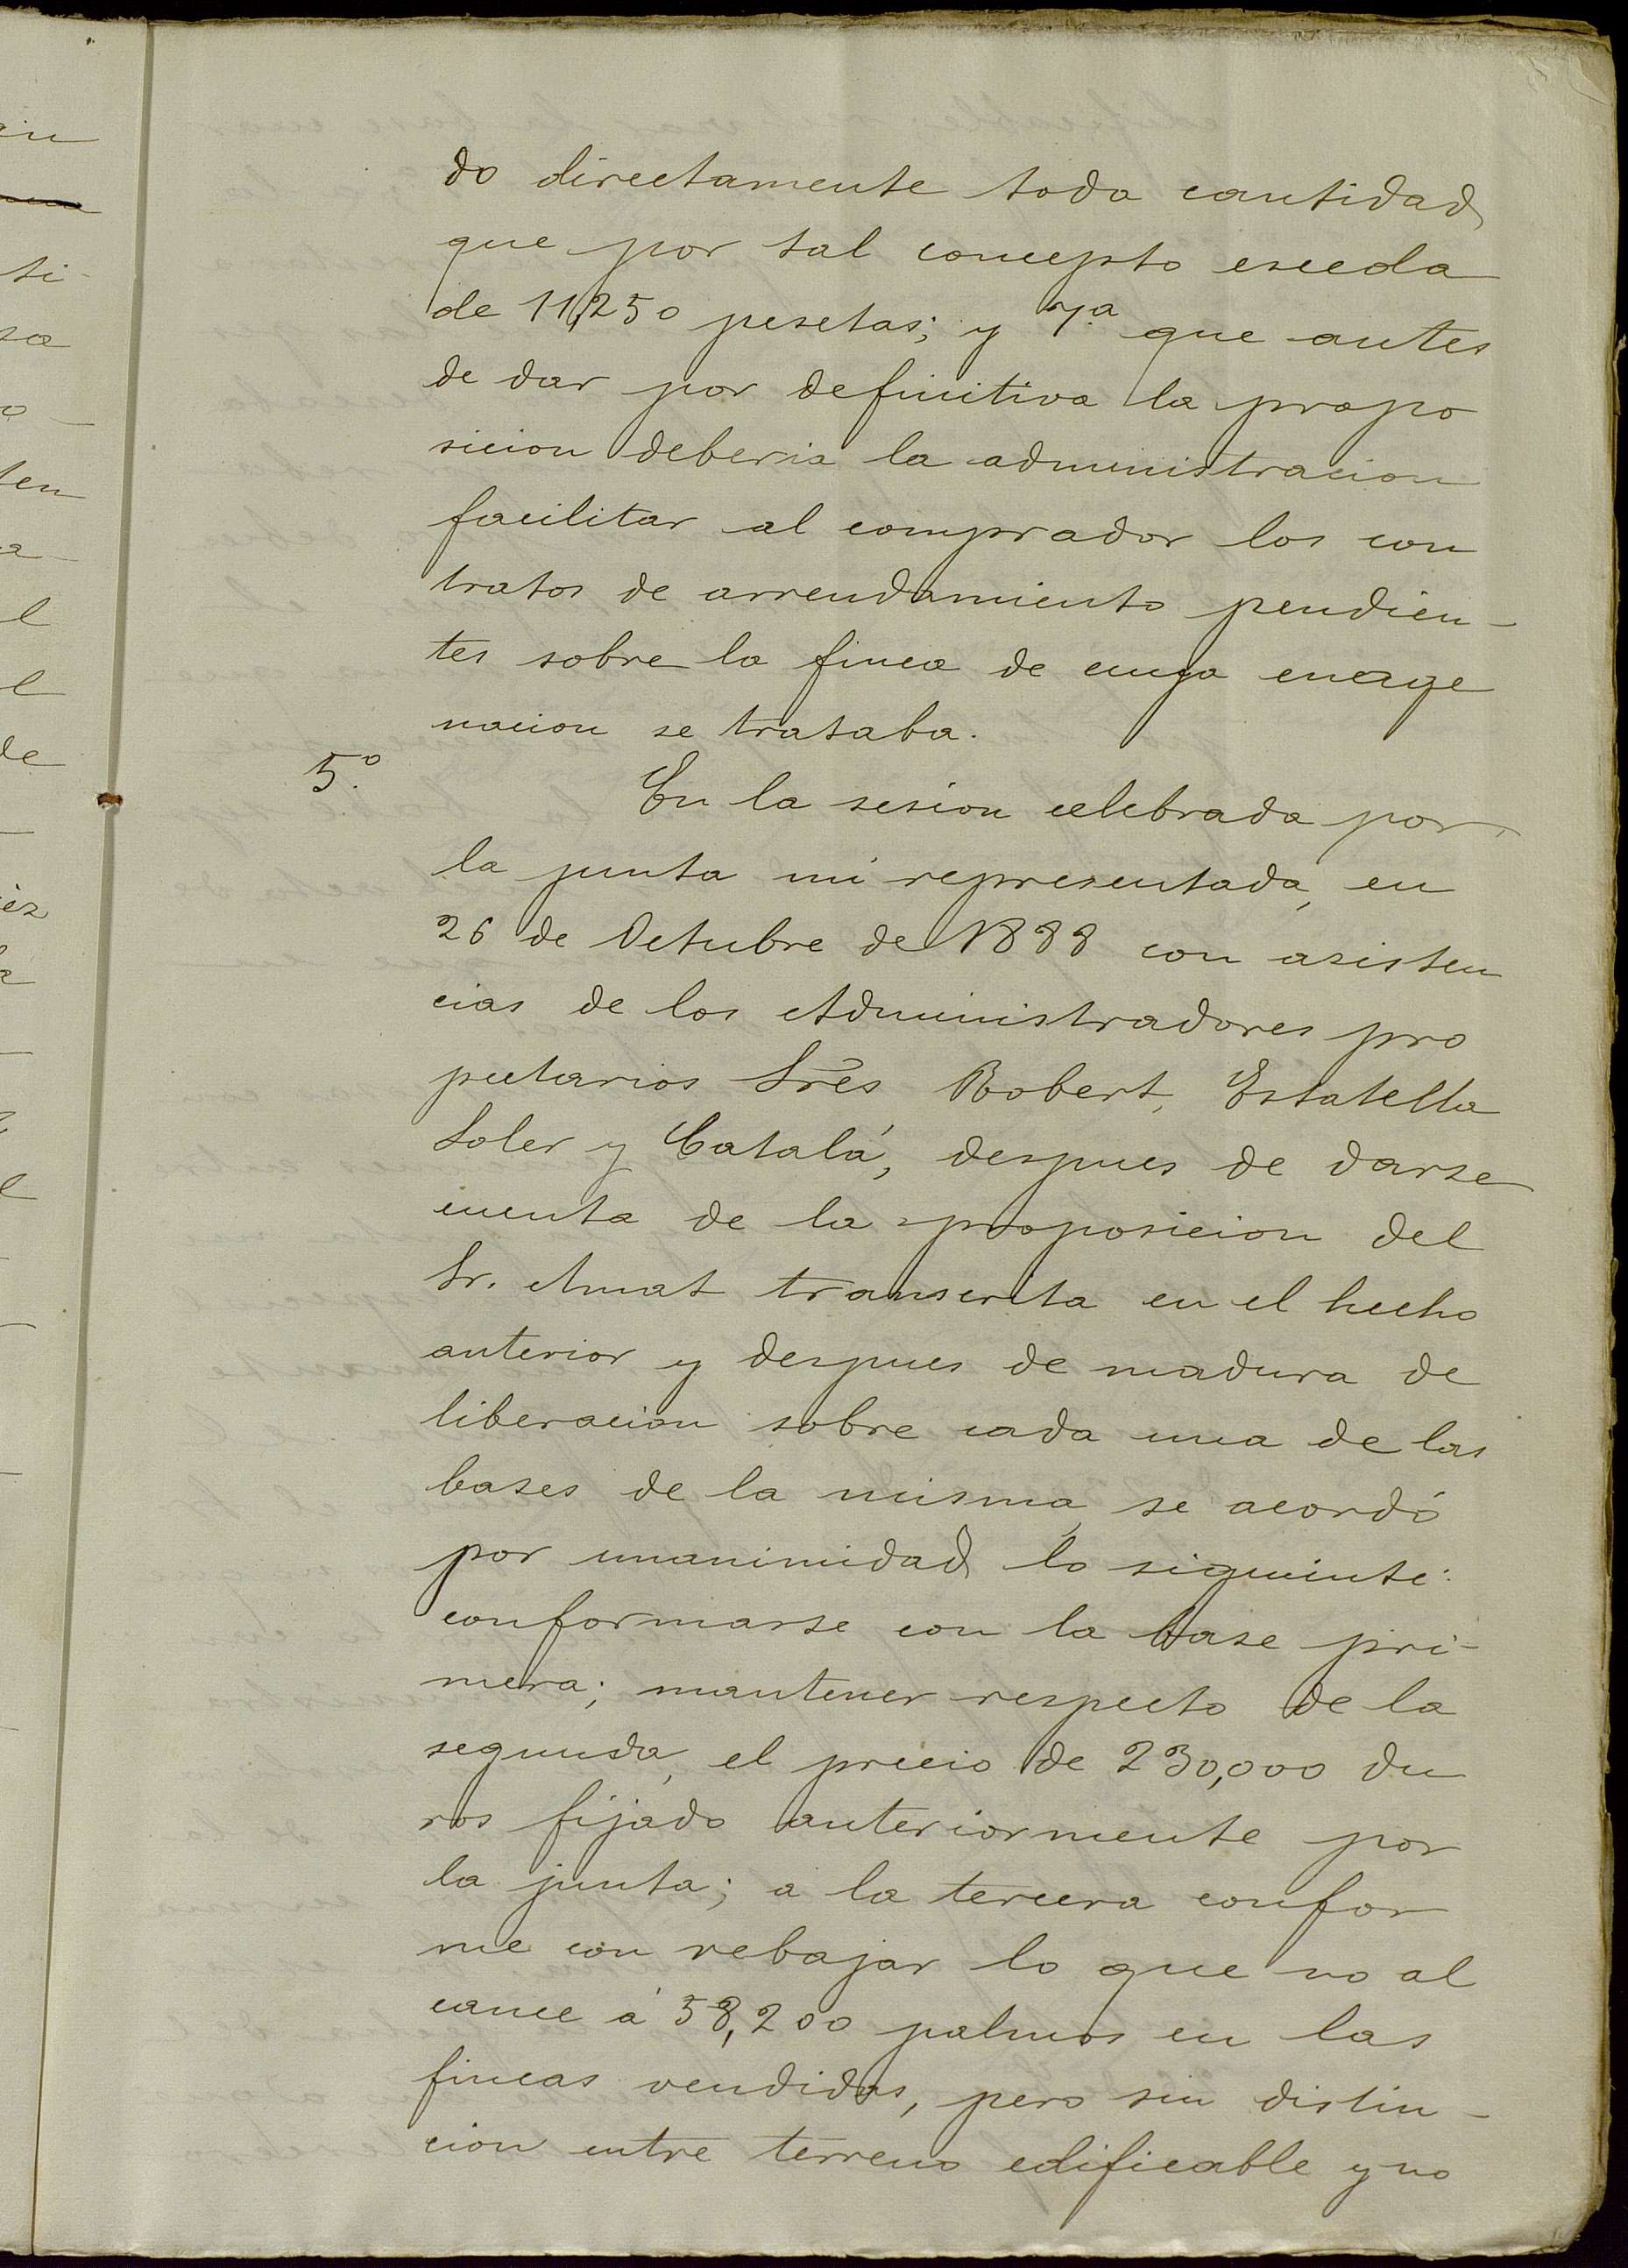 do directamente toda cantidad
que por tal concepto esceda
de 11,250 pesetas; y 7.ª que antes
de dar por definitiva la propo
sicion deberia la administracion
facilitar al comprador los con
tratos de arrendamiento pendien-
tes sobre la finca de cuya enage
nacion se trataba.
5.º
En la sesion celebrada por
la junta mi representada, en
26 de Octubre de 1888 con asisten
cias de los Administradores pro
pietarios Sres Robert, Estatella
Soler y Catalá, despues de darse
cuenta de la proposicion del
Sr. Amat transcrita en el hecho
anterior y despues de madura de
liberacion sobre cada una de las
bases de la misma, se acordó
por unanimidad lo siguiente:
conformarse con la base pri-
mera; mantener respecto de la
segunda, el precio de 230,000 du
ros fijado anteriormente por
la junta; a la tercera confor
me con rebajar lo que no al
cance á 58,200 palmos en las
fincas vendidas, pero sin distin-
cion entre terreno edificable y no